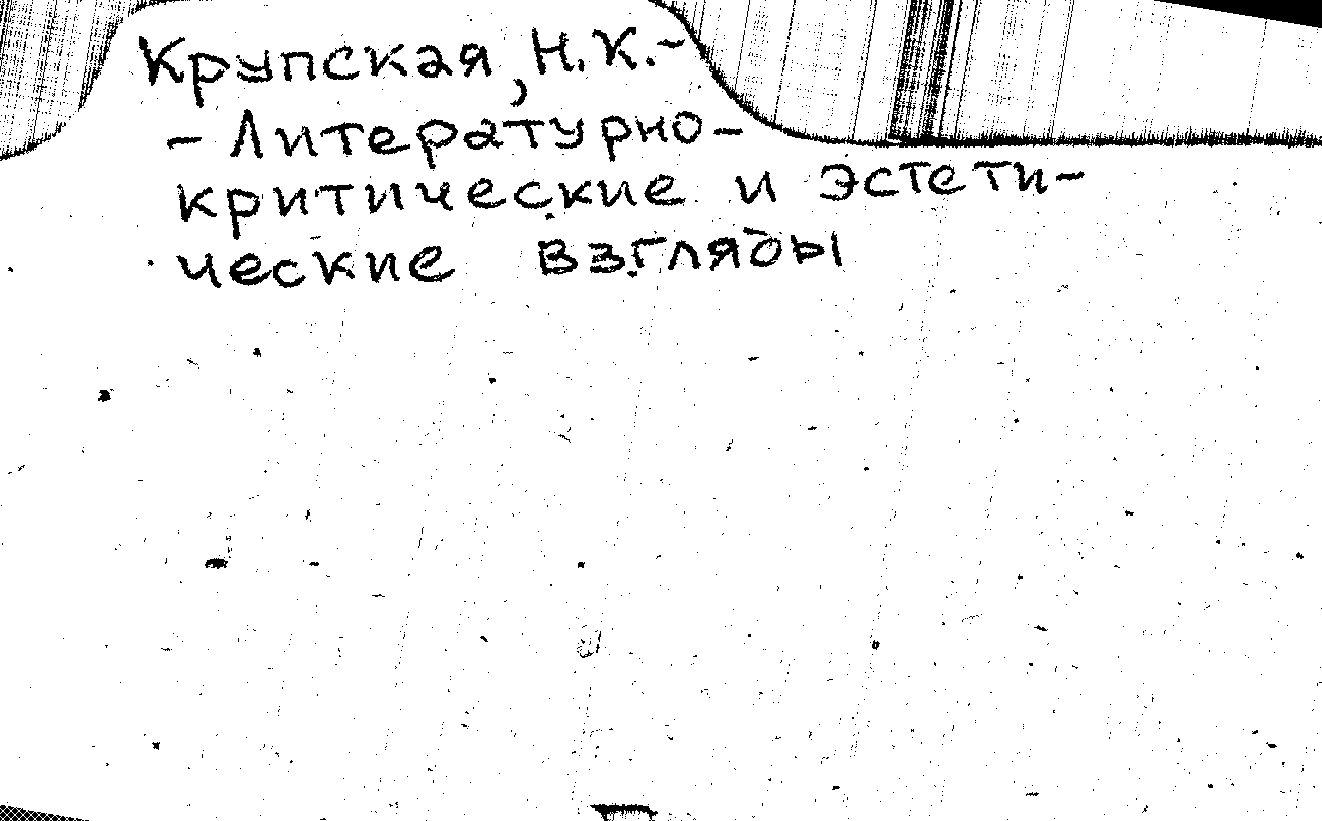 Крупская, Н.К.-
- Литературно-
критические и эстети-
ческие взгляды